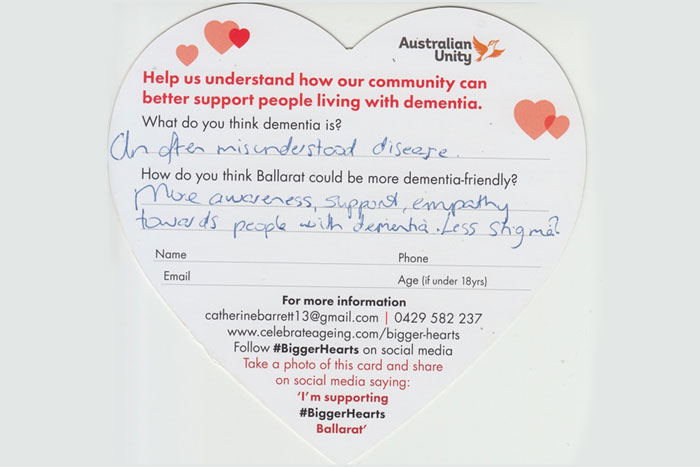 Australian
Unity
Help us understand how our community can
better support people living with dementia.
What do you think dementia is?
An often misunderstood disease.
How do you think Ballarat could be more dementia-friendly?
More awareness, support, empathy
towards people with dementia. Less stigma?
Name Phone
Email Age (if under 18yrs)
For more information
catherinebarrett13@gmail.com | 0429 582 237
www.celebrateageing.com/bigger-hearts
Follow #BiggerHearts on social media
Take a photo of this card and share
on social media saying:
'I'm supporting
#BiggerHearts
Ballarat'